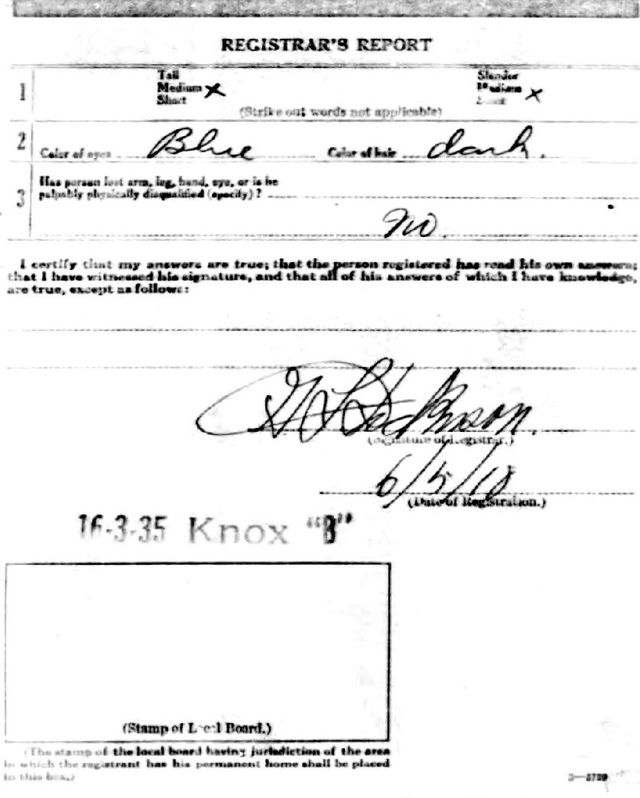 REGISTRAR'S REPORT
1 Tall Slender
Medium x Medium x
Short Stout
(Strike out words not applicable)
2 Color of eyes Blue Color of hair dark.
3 Has person lost arm, leg, hand, eye, or is he
palpably physically disqualified (specify)?
No.
I certify that my answers are true; that the person registered has read his own answers;
that I have witnessed his signature, and that all of his answers of which I have knowledge,
are true, except as follows:
(Signature of Registrar.)
6/5/18
(Date of Registration.)
16-3-35 Knox "B"
(Stamp of Local Board.)
(The stamp of the local board having jurisdiction of the area
in which the registrant has his permanent home shall be placed
in this box.)